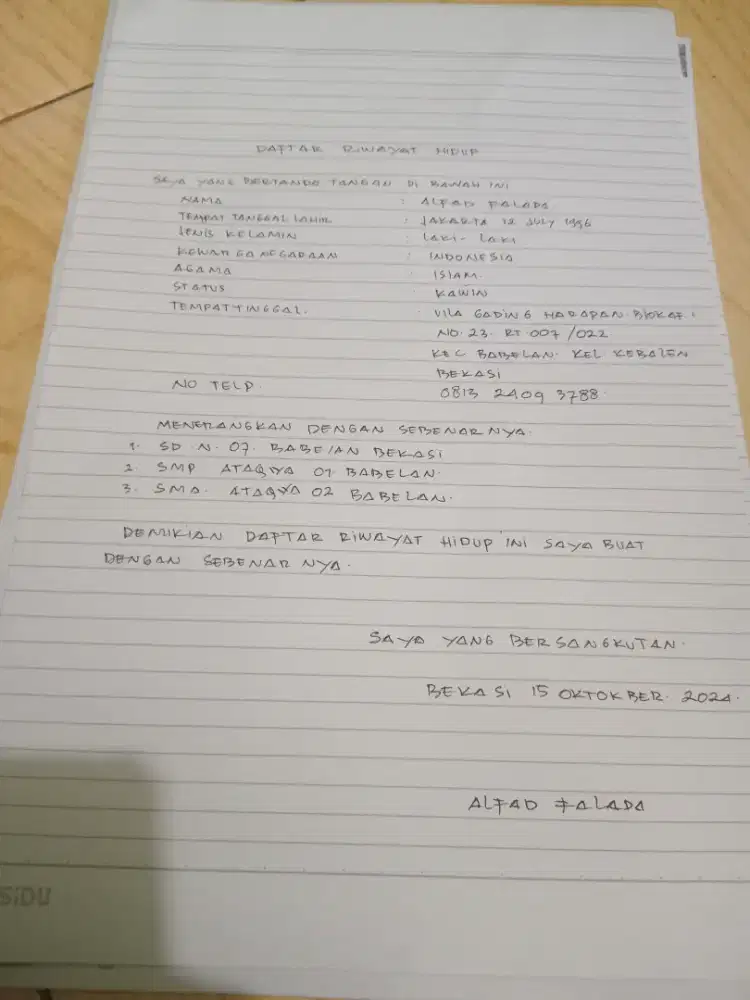 DAFTAR RIWAYAT HIDUP
SAYA YANG BERTANDA TANGAN DI BAWAH INI
NAMA : ALFAD FALADA
TEMPAT TANGGAL LAHIR : JAKARTA 12 JULY 1996
JENIS KELAMIN : LAKI - LAKI
KEWARGANEGARAAN : INDONESIA
AGAMA : ISLAM.
STATUS : KAWIN
TEMPAT TINGGAL. : VILA GADING HARAPAN
NO. 23. RT 007/022
KEC BABELAN. KEL KEBALEN
BEKASI
NO TELP. 0813 2409 3788.
MENERANGKAN DENGAN SEBENAR NYA.
1. SD N. 07. BABELAN BEKASI
2. SMP ATAQYA 01 BABELAN.
3. SMA. ATAQYA 02 BABELAN.
DEMIKIAN DAFTAR RIWAYAT HIDUP INI SAYA BUAT
DENGAN SEBENAR NYA.
SAYA YANG BERSANGKUTAN.
BEKASI 15 OKTOKBER. 2024.
ALFAD FALADA
SiDU